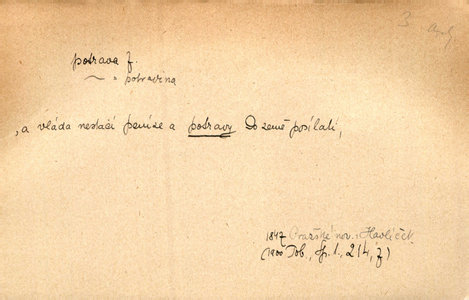 potrava f.
~ = potravina
„a vláda nestačí peníze a potravy do země posílati,
1847 Pražské nov. Havlíček
(1900 Tob., Sp. 1., 214, f)